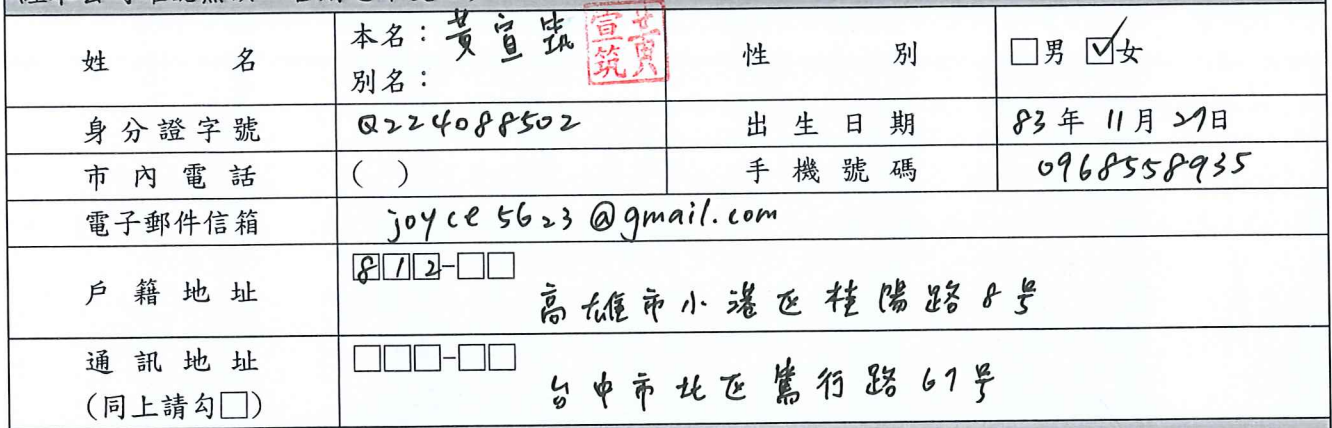 姓名 本名：黃宣筑 黃宣筑 性別 □男 ☑女
別名：
身分證字號 Q224088502 出生日期 83年11月27日
市內電話 ( ) 手機號碼 0968558935
電子郵件信箱 joyce5623@gmail.com
戶籍地址 812-□□
高雄市小港區桂陽路8号
通訊地址 □□□-□□
(同上請勾□) 台中市北区篤行路67号